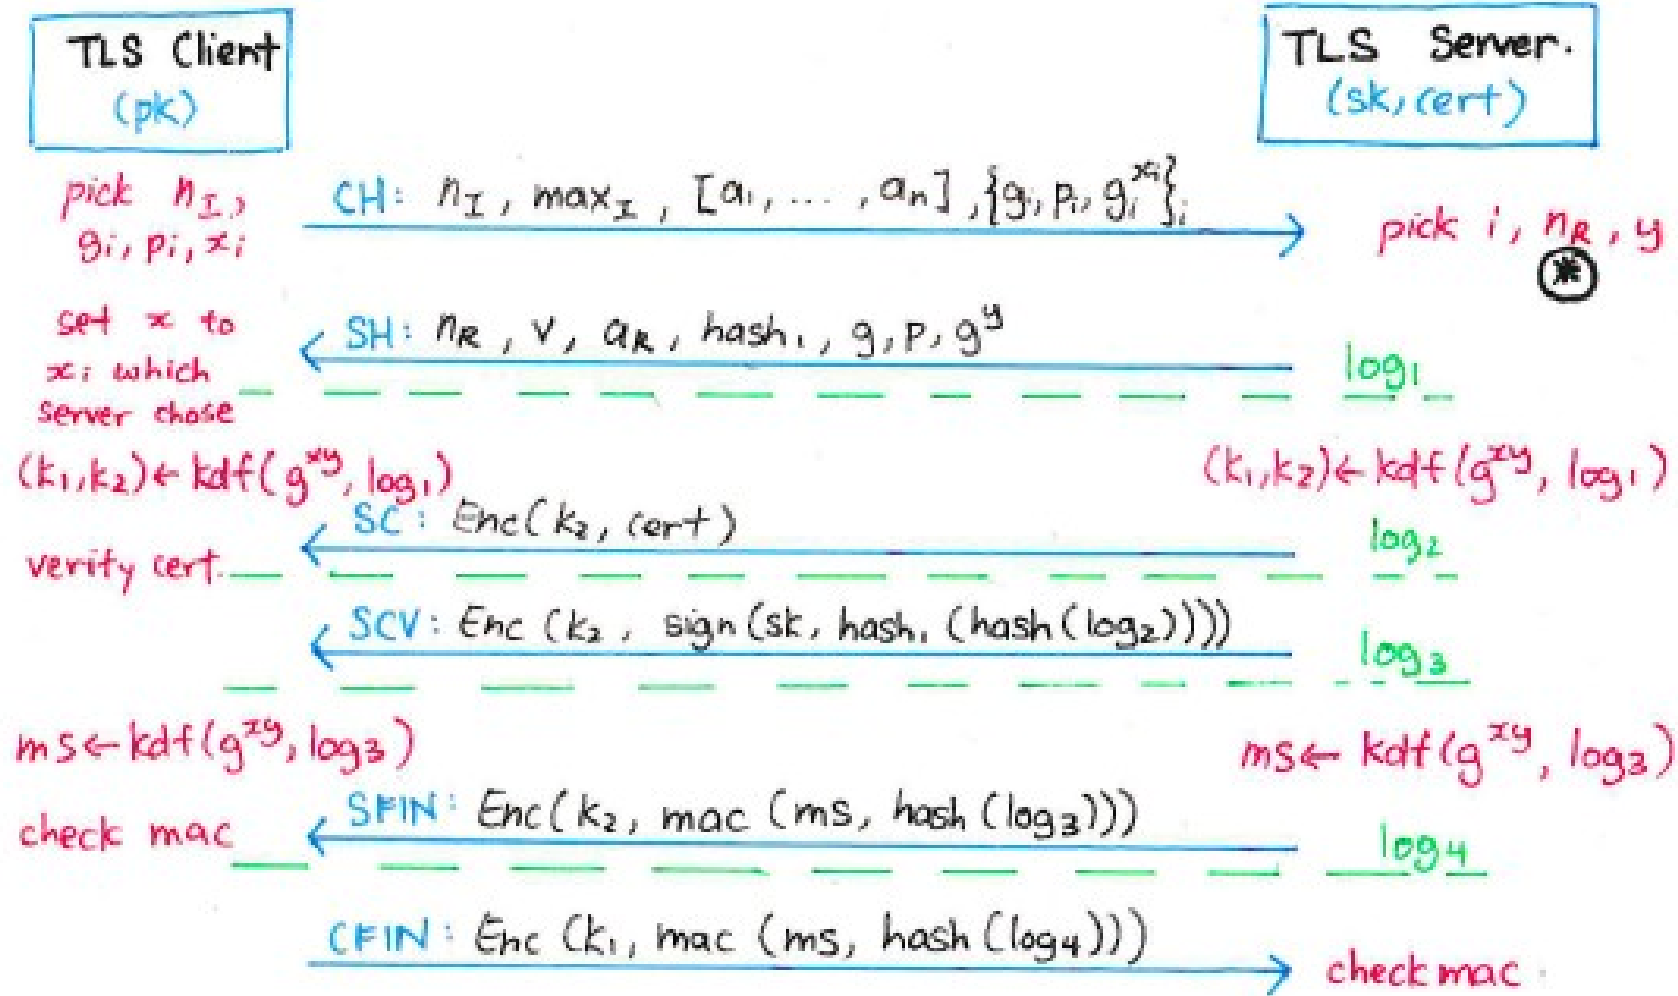 TLS Client
(pk)
TLS Server.
(sk, cert)
pick n_I,
g_i, p_i, x_i
CH: n_I, max_I, [a_1, ..., a_n], {g_i, p_i, g_i^{x_i}}_i
pick i, n_R, y
*
set x to
x_i which
server chose
SH: n_R, v, a_R, hash_1, g, p, g^y
log_1
(k_1,k_2)←kdf(g^{xy}, log_1)
(k_1,k_2)←kdf(g^{xy}, log_1)
SC: Enc(k_2, cert)
log_2
verify cert.
SCV: Enc (k_2, sign(sk, hash_1 (hash(log_2))))
log_3
ms←kdf(g^{xy}, log_3)
ms← kdf(g^{xy}, log_3)
SFIN: Enc(k_2, mac (ms, hash (log_3)))
check mac
log_4
CFIN: Enc (k_1, mac (ms, hash (log_4)))
check mac